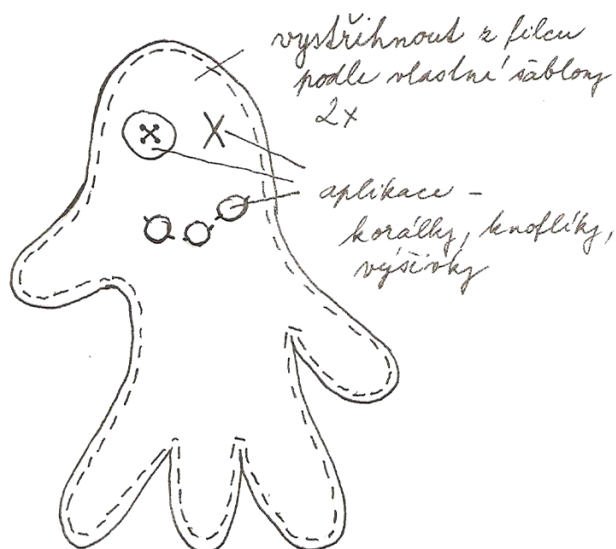 vystřihnout z filcu
podle vlastní šablony
2x
aplikace –
korálky, knoflíky,
výšivky